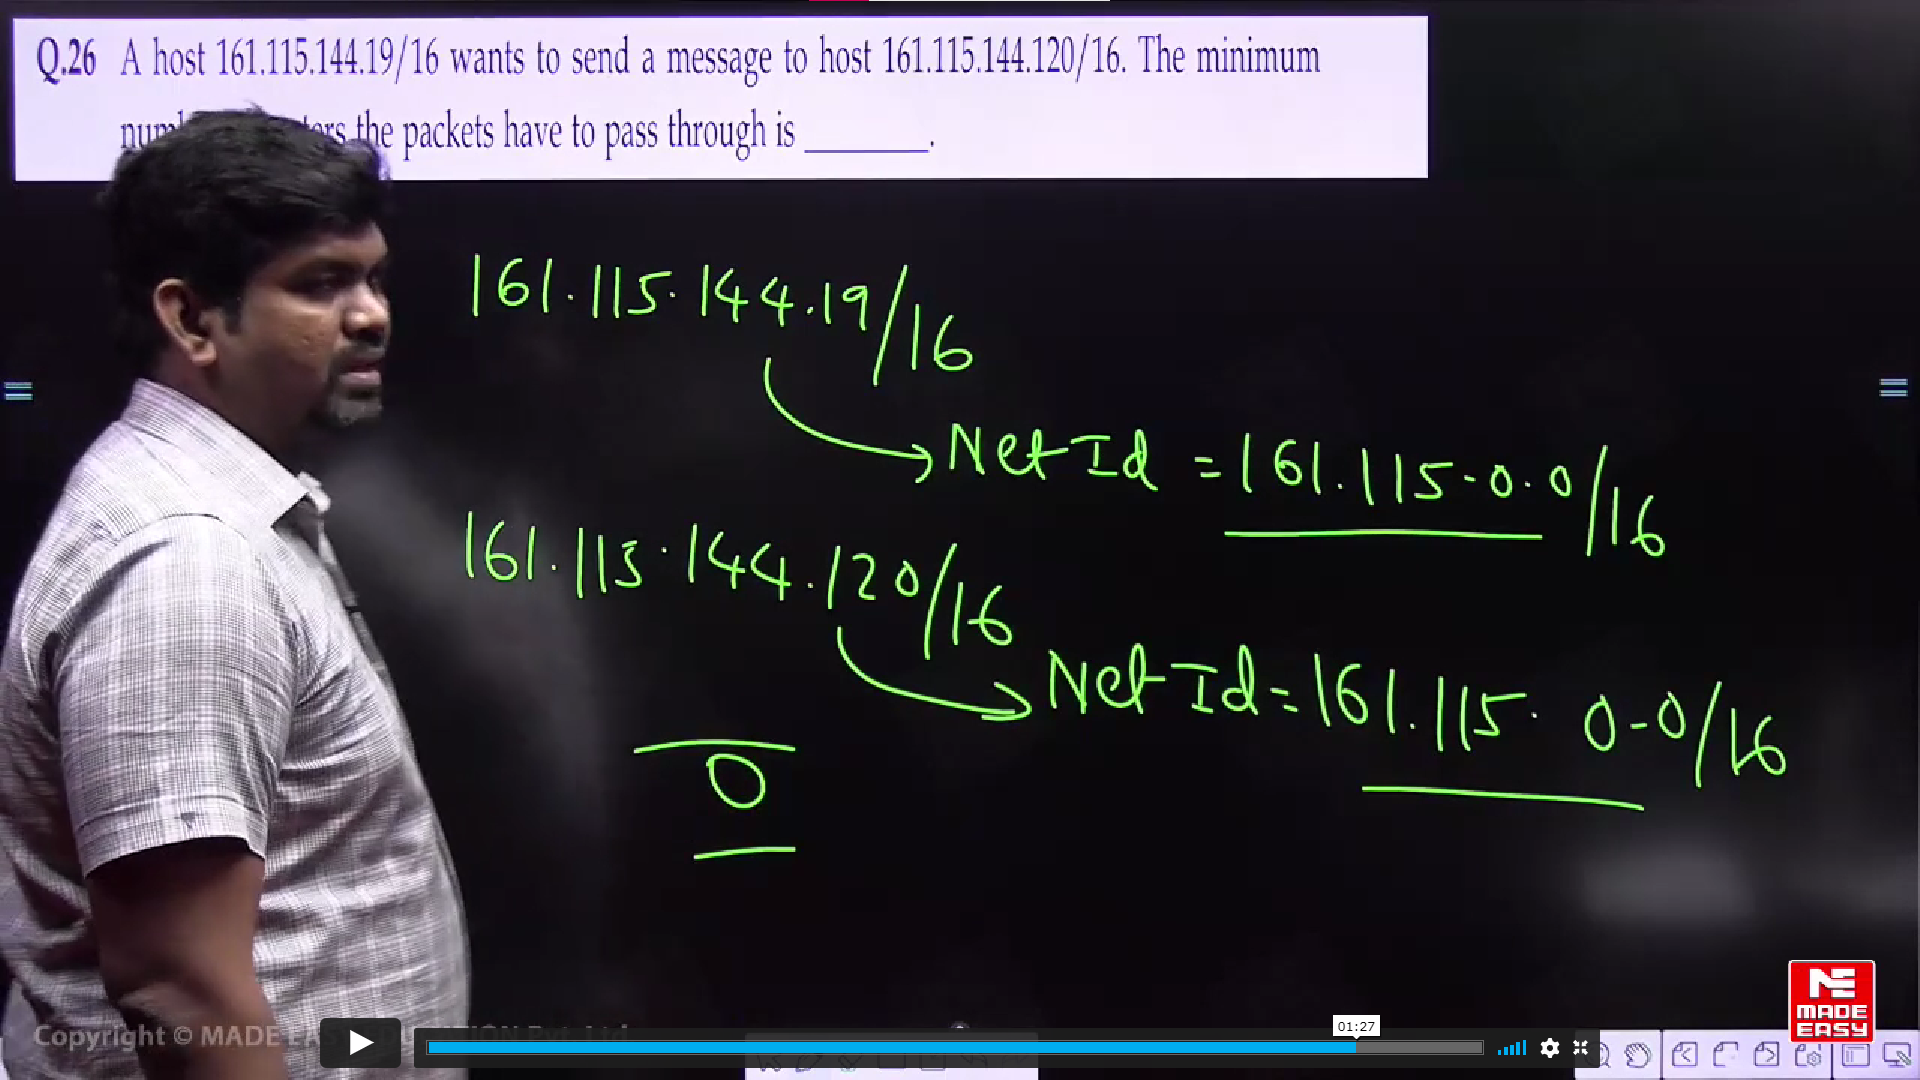 Q.26 A host 161.115.144.19/16 wants to send a message to host 161.115.144.120/16. The minimum
the packets have to pass through is ________.
161.115.144.19/16
Net Id = 161.115.0.0/16
161.115.144.120/16
Net Id = 161.115.0.0/16
0
01:27
Copyright © MADE
MADE
EASY